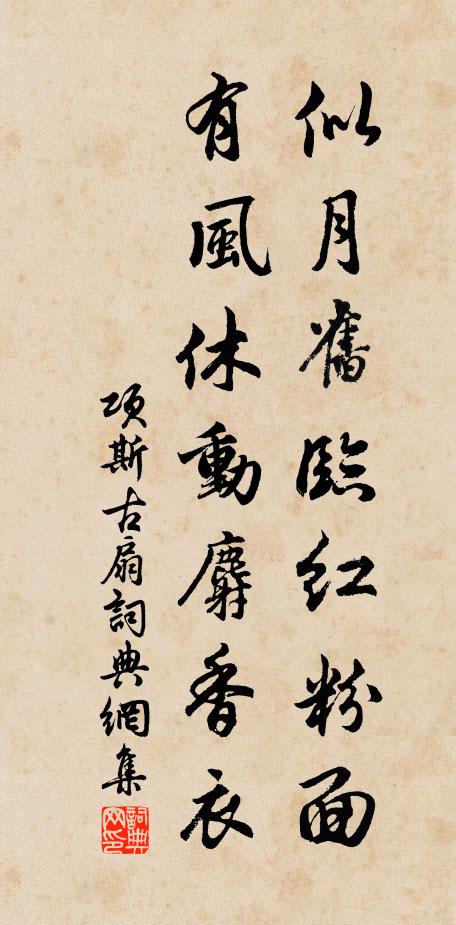 似月舊臨紅粉面
有風休動麝香衣
項斯古扇詞典網集
詞典網印